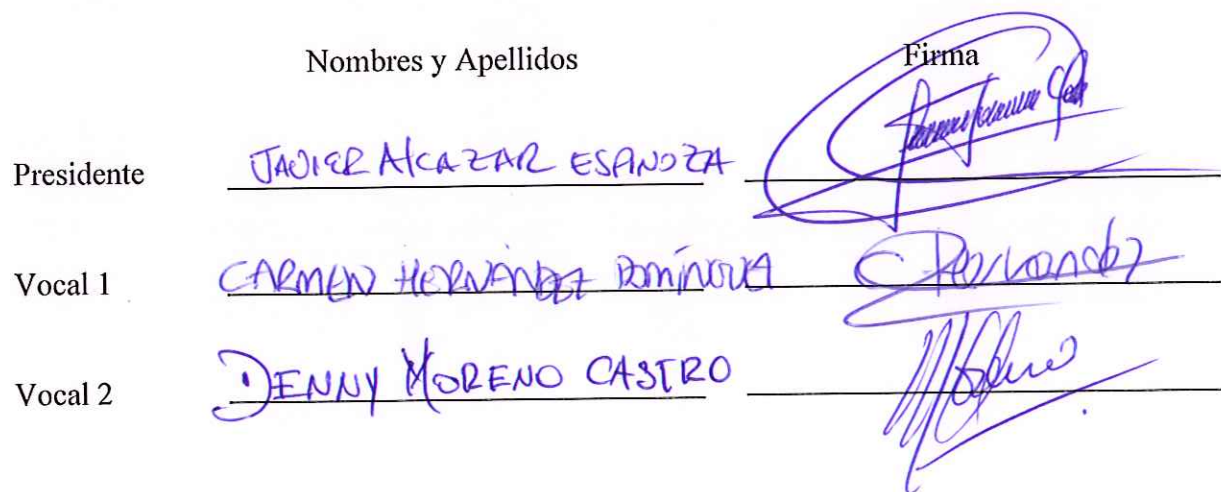 Nombres y Apellidos Firma
Presidente JAVIER AlCAZAR ESPINOZA
Vocal 1 CARMEN HERNÁNDEZ CHernandez
Vocal 2 DENNY MORENO CASTRO